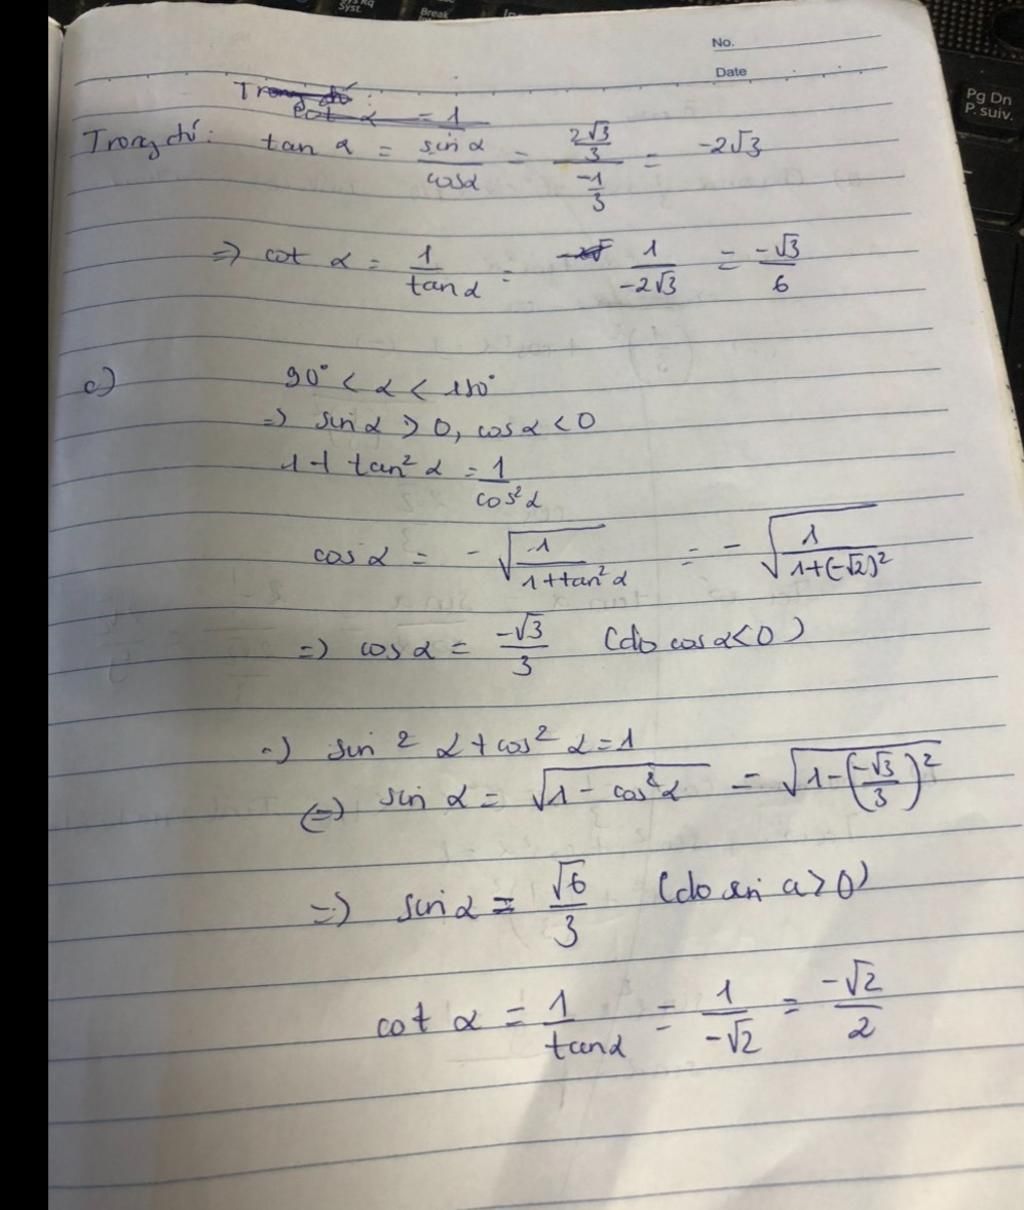 Sys Rq
Syst.
Break
Pg Dn
P. suiv.
No.
Date
Trong đó:
cot α = 1
Trong đó: tan α = sin α / cos α = (2√3/3) / (-1/3) = -2√3
=) cot α = 1 / tan α = 1 / -2√3 = -√3 / 6
c) 90° < α < 180°
=) sin α > 0, cos α < 0
1 + tan² α = 1 / cos² α
cos α = - √(1 / 1+tan² α) = - √(1 / 1+(-√2)²)
=) cos α = -√3 / 3 (do cos α < 0)
=) sin² α + cos² α = 1
(=) sin α = √(1 - cos² α) = √(1 - (-√3/3)²)
=) sin α = √6 / 3 (do sin α > 0)
cot α = 1 / tan α = 1 / -√2 = -√2 / 2